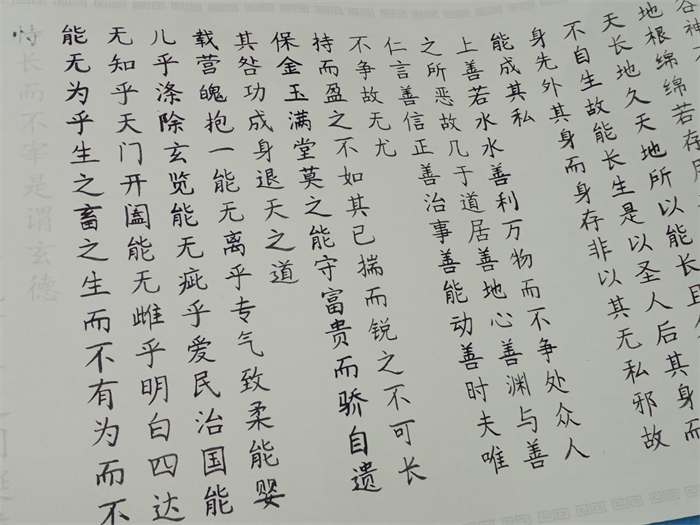 谷神
地根绵绵若存用
天长地久天地所以能长且
不自生故能长生是以圣人后其身而
身先外其身而身存非以其无私邪故
能成其私
上善若水水善利万物而不争处众人
之所恶故几于道居善地心善渊与善
仁言善信正善治事善能动善时夫唯
不争故无尤
持而盈之不如其已揣而锐之不可长
保金玉满堂莫之能守富贵而骄自遗
其咎功成身退天之道
载营魄抱一能无离乎专气致柔能婴
儿乎涤除玄览能无疵乎爱民治国能
无知乎天门开阖能无雌乎明白四达
能无为乎生之畜之生而不有为而不
恃长而不宰是谓玄德